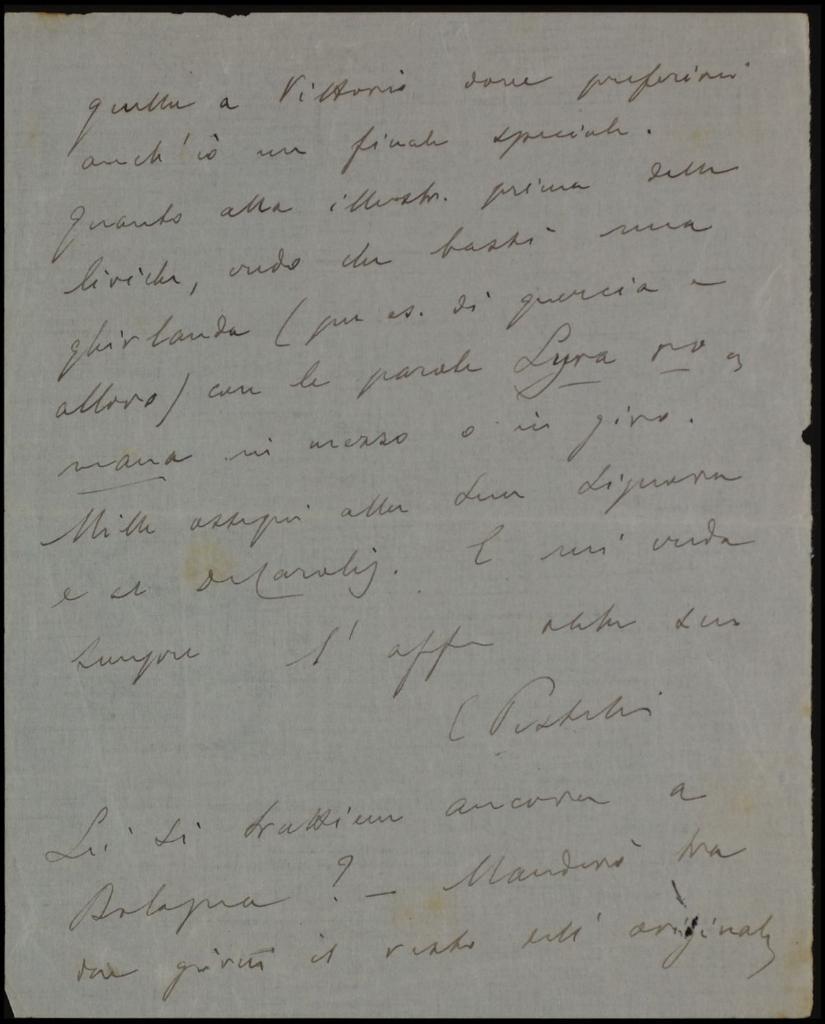 quella a Vittorio dove preferirei
anch'io un finale speciale.
Quanto alla illustr. prima delle
liriche, credo che basti una
ghirlanda (per es. di quercia e
alloro) con le parole Lyra ro
mana in mezzo o in giro.
Mille ossequi alla Sua Signora
e al DeCarolis. E mi creda
sempre l' aff.
E Pistelli
Lei si trattiene ancora a
Bologna? — Manderò tra
due giorni il resto dell' originale